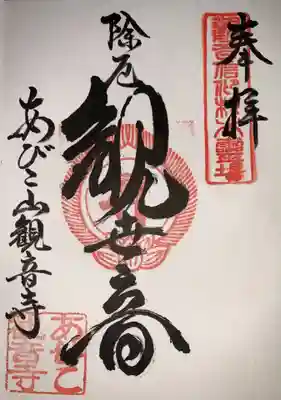 奉拝
除厄
観世音
あびこ山観音寺
あびこ
観音寺